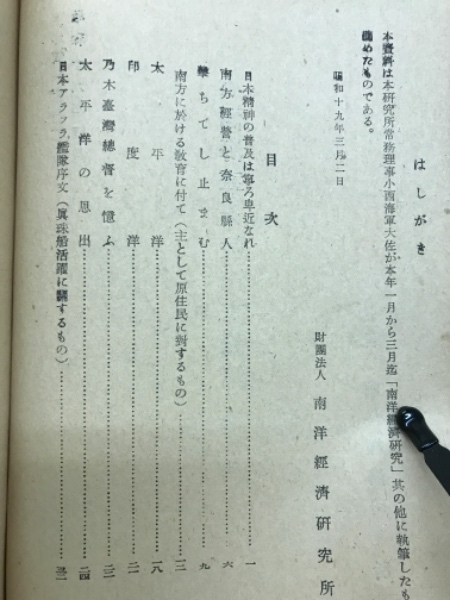 はしがき
本資料は本研究所常務理事小西海軍大佐が本年一月から三月迄「南洋經濟研究」其の他に執筆したも
纏めたものである。
昭和十九年三月二日
財團法人 南洋經濟研究所
目次
日本精神の普及は寧ろ卑近なれ…一
南方經營と奈良縣人…六
擊ちてし止まむ…九
南方に於ける敎育に付て(主として原住民に對するもの)…一二
太平洋…一八
印度洋…三
乃木臺灣總督を憶ふ…三
太平洋の思出…二四
日本アラフラ艦隊序文(眞珠船活躍に關するもの)…